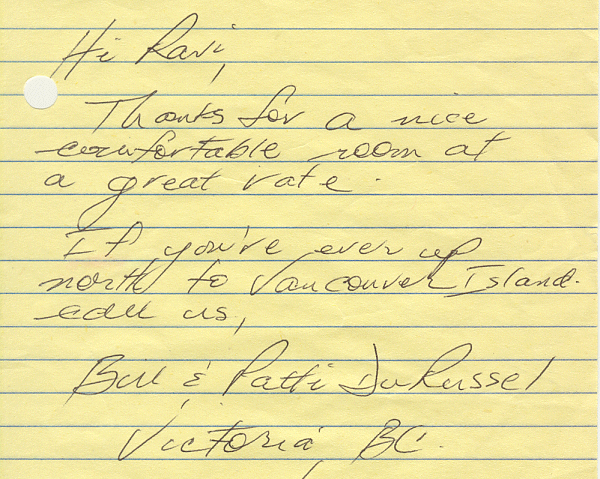 Hi Ravi,
Thanks for a nice
comfortable room at
a great rate.
If you're ever up
north to Vancouver Island.
call us,
Bill & Patti DuRussel
Victoria, BC.